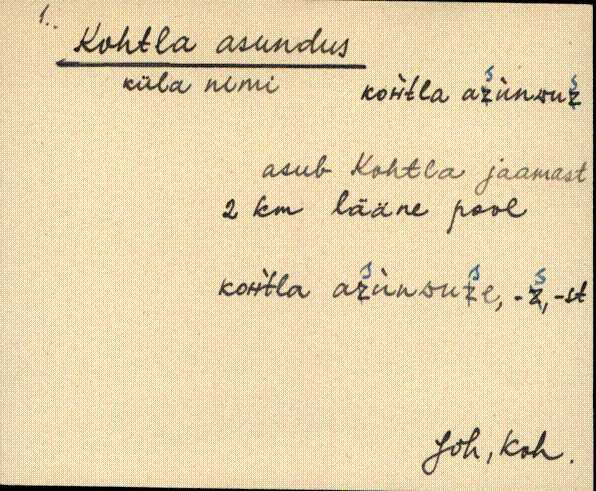 1.
Kohtla asundus
küla nimi
koʜ̀tla azùnᴅuz
asub Kohtla jaamast
2 km lääne pool
koʜ̀tla azùnᴅuze, -z, -st
Jõh, Koh.